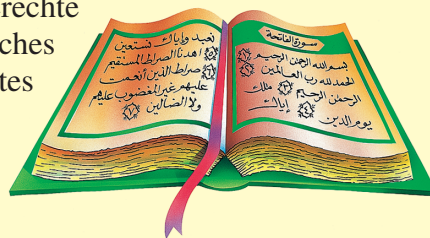 rechte
ches
tes
سورة الفاتحة
بسم الله الرحمن الرحيم ١
الحمد لله رب العالمين ٢
الرحمن الرحيم ٣ ملك
يوم الدين ٤ إياك
نعبد وإياك نستعين
٥ اهدنا الصراط المستقيم
٦ صراط الذين أنعمت
عليهم غير المغضوب عليهم
ولا الضالين ٧